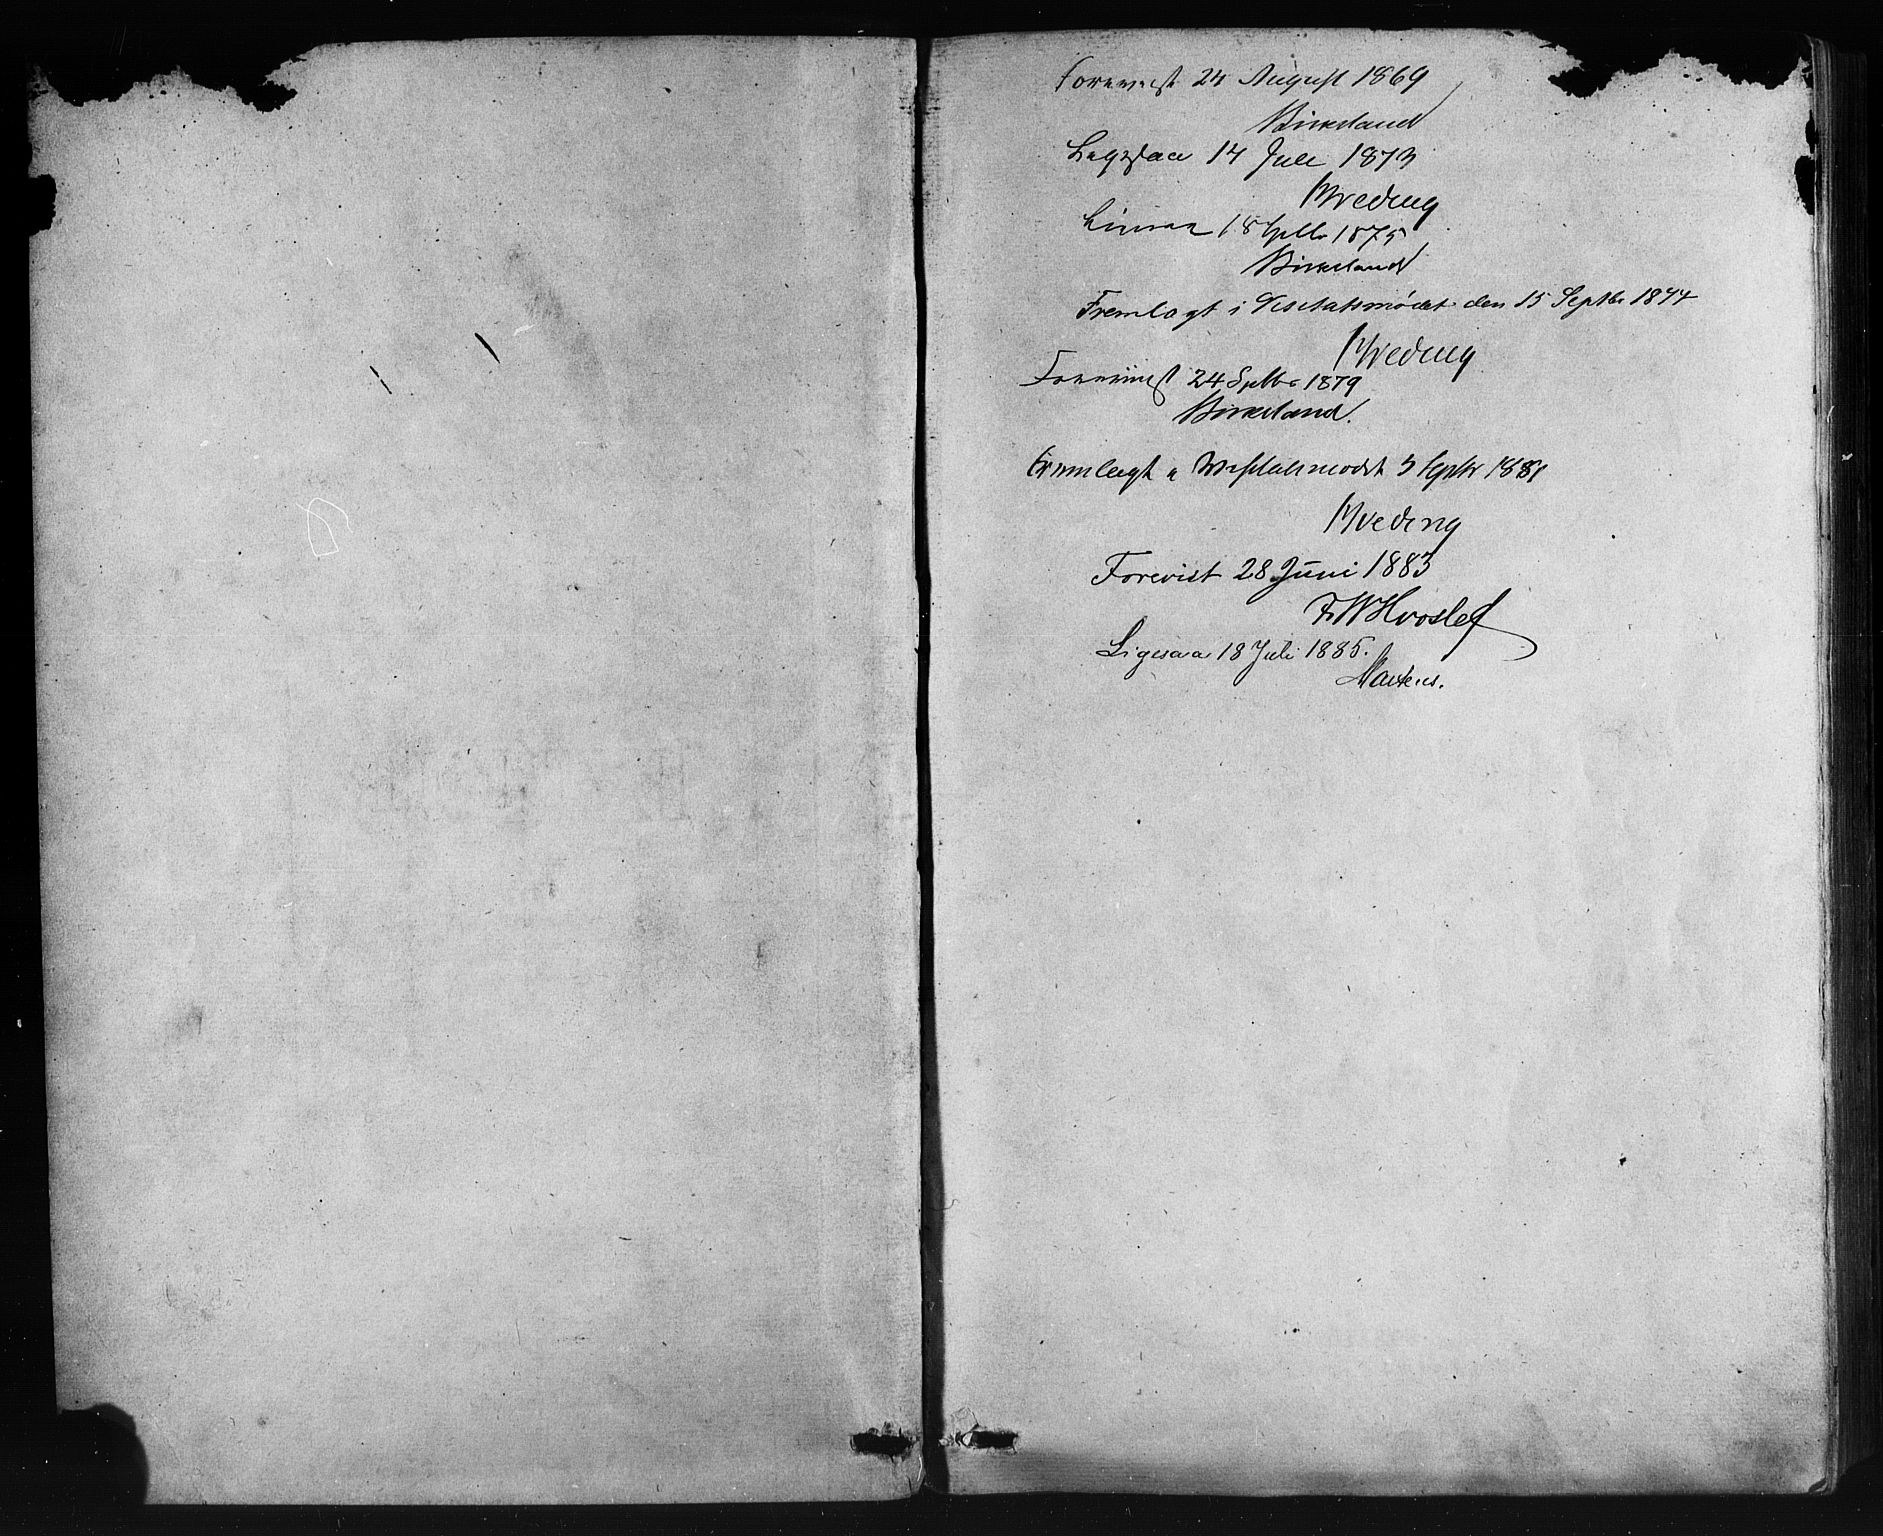 Forevist 24 August 1869
Birkeland
Ligesaa 14 Juli 1873
Hveding
Ligesaa 18 Septbr 1875
Birkeland
Fremlagt i Visitatsmødet den 15 Septbr 1877
Hveding
Forevist 24 Septbr 1879
Birkeland.
Fremlagt i Visitatsmødet 5 Septbr 1881
Hveding
Forevist 28 Juni 1883
FWHvoslef
Ligesaa 18 Juli 1885.